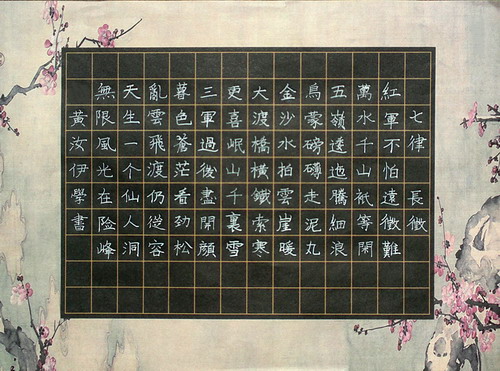 七律 長徵
紅軍不怕遠徵難
萬水千山祇等閑
五嶺逶迤騰細浪
烏蒙磅礴走泥丸
金沙水拍雲崖暖
大渡橋橫鐵索寒
更喜岷山千裏雪
三軍過後盡開顏
暮色蒼茫看劲松
亂雲飛渡仍從容
天生一个仙人洞
無限風光在险峰
黃汝伊學書